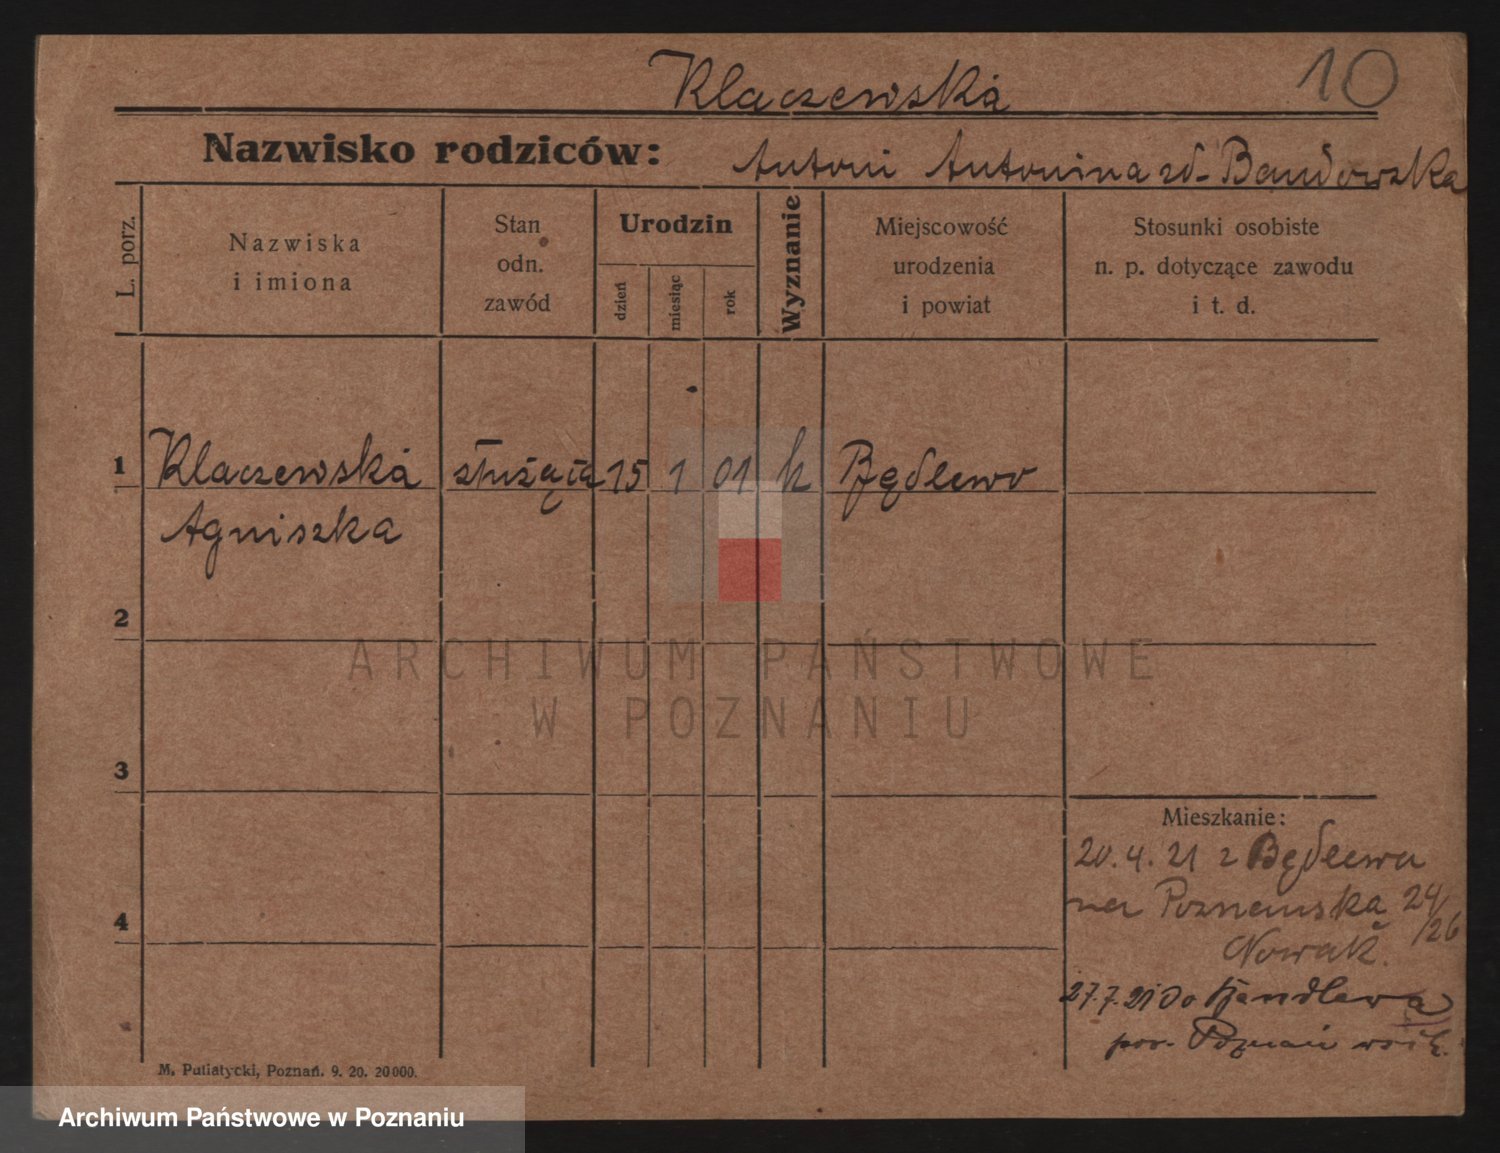 10
Klaczewska
Nazwisko rodziców: Antoni Antonina zd. Bandowska
L. porz.
Nazwiska
i imiona
Stan
odn.
zawód
Urodzin
dzień
miesiąc
rok
Wyznanie
Miejscowość
urodzenia
i powiat
Stosunki osobiste
n. p. dotyczące zawodu
i t. d.
1 Klaczewska służąca 15 1 01 k Będlewo
Agniszka
2
3
4
Mieszkanie:
20.4.21 z Będlewa
na Poznańska 24/26
Nowak.
27.7.21 do
pow. Poznań
M. Putiatycki, Poznań. 9. 20. 20000.
ARCHIWUM PAŃSTWOWE
W POZNANIU
Archiwum Państwowe w Poznaniu